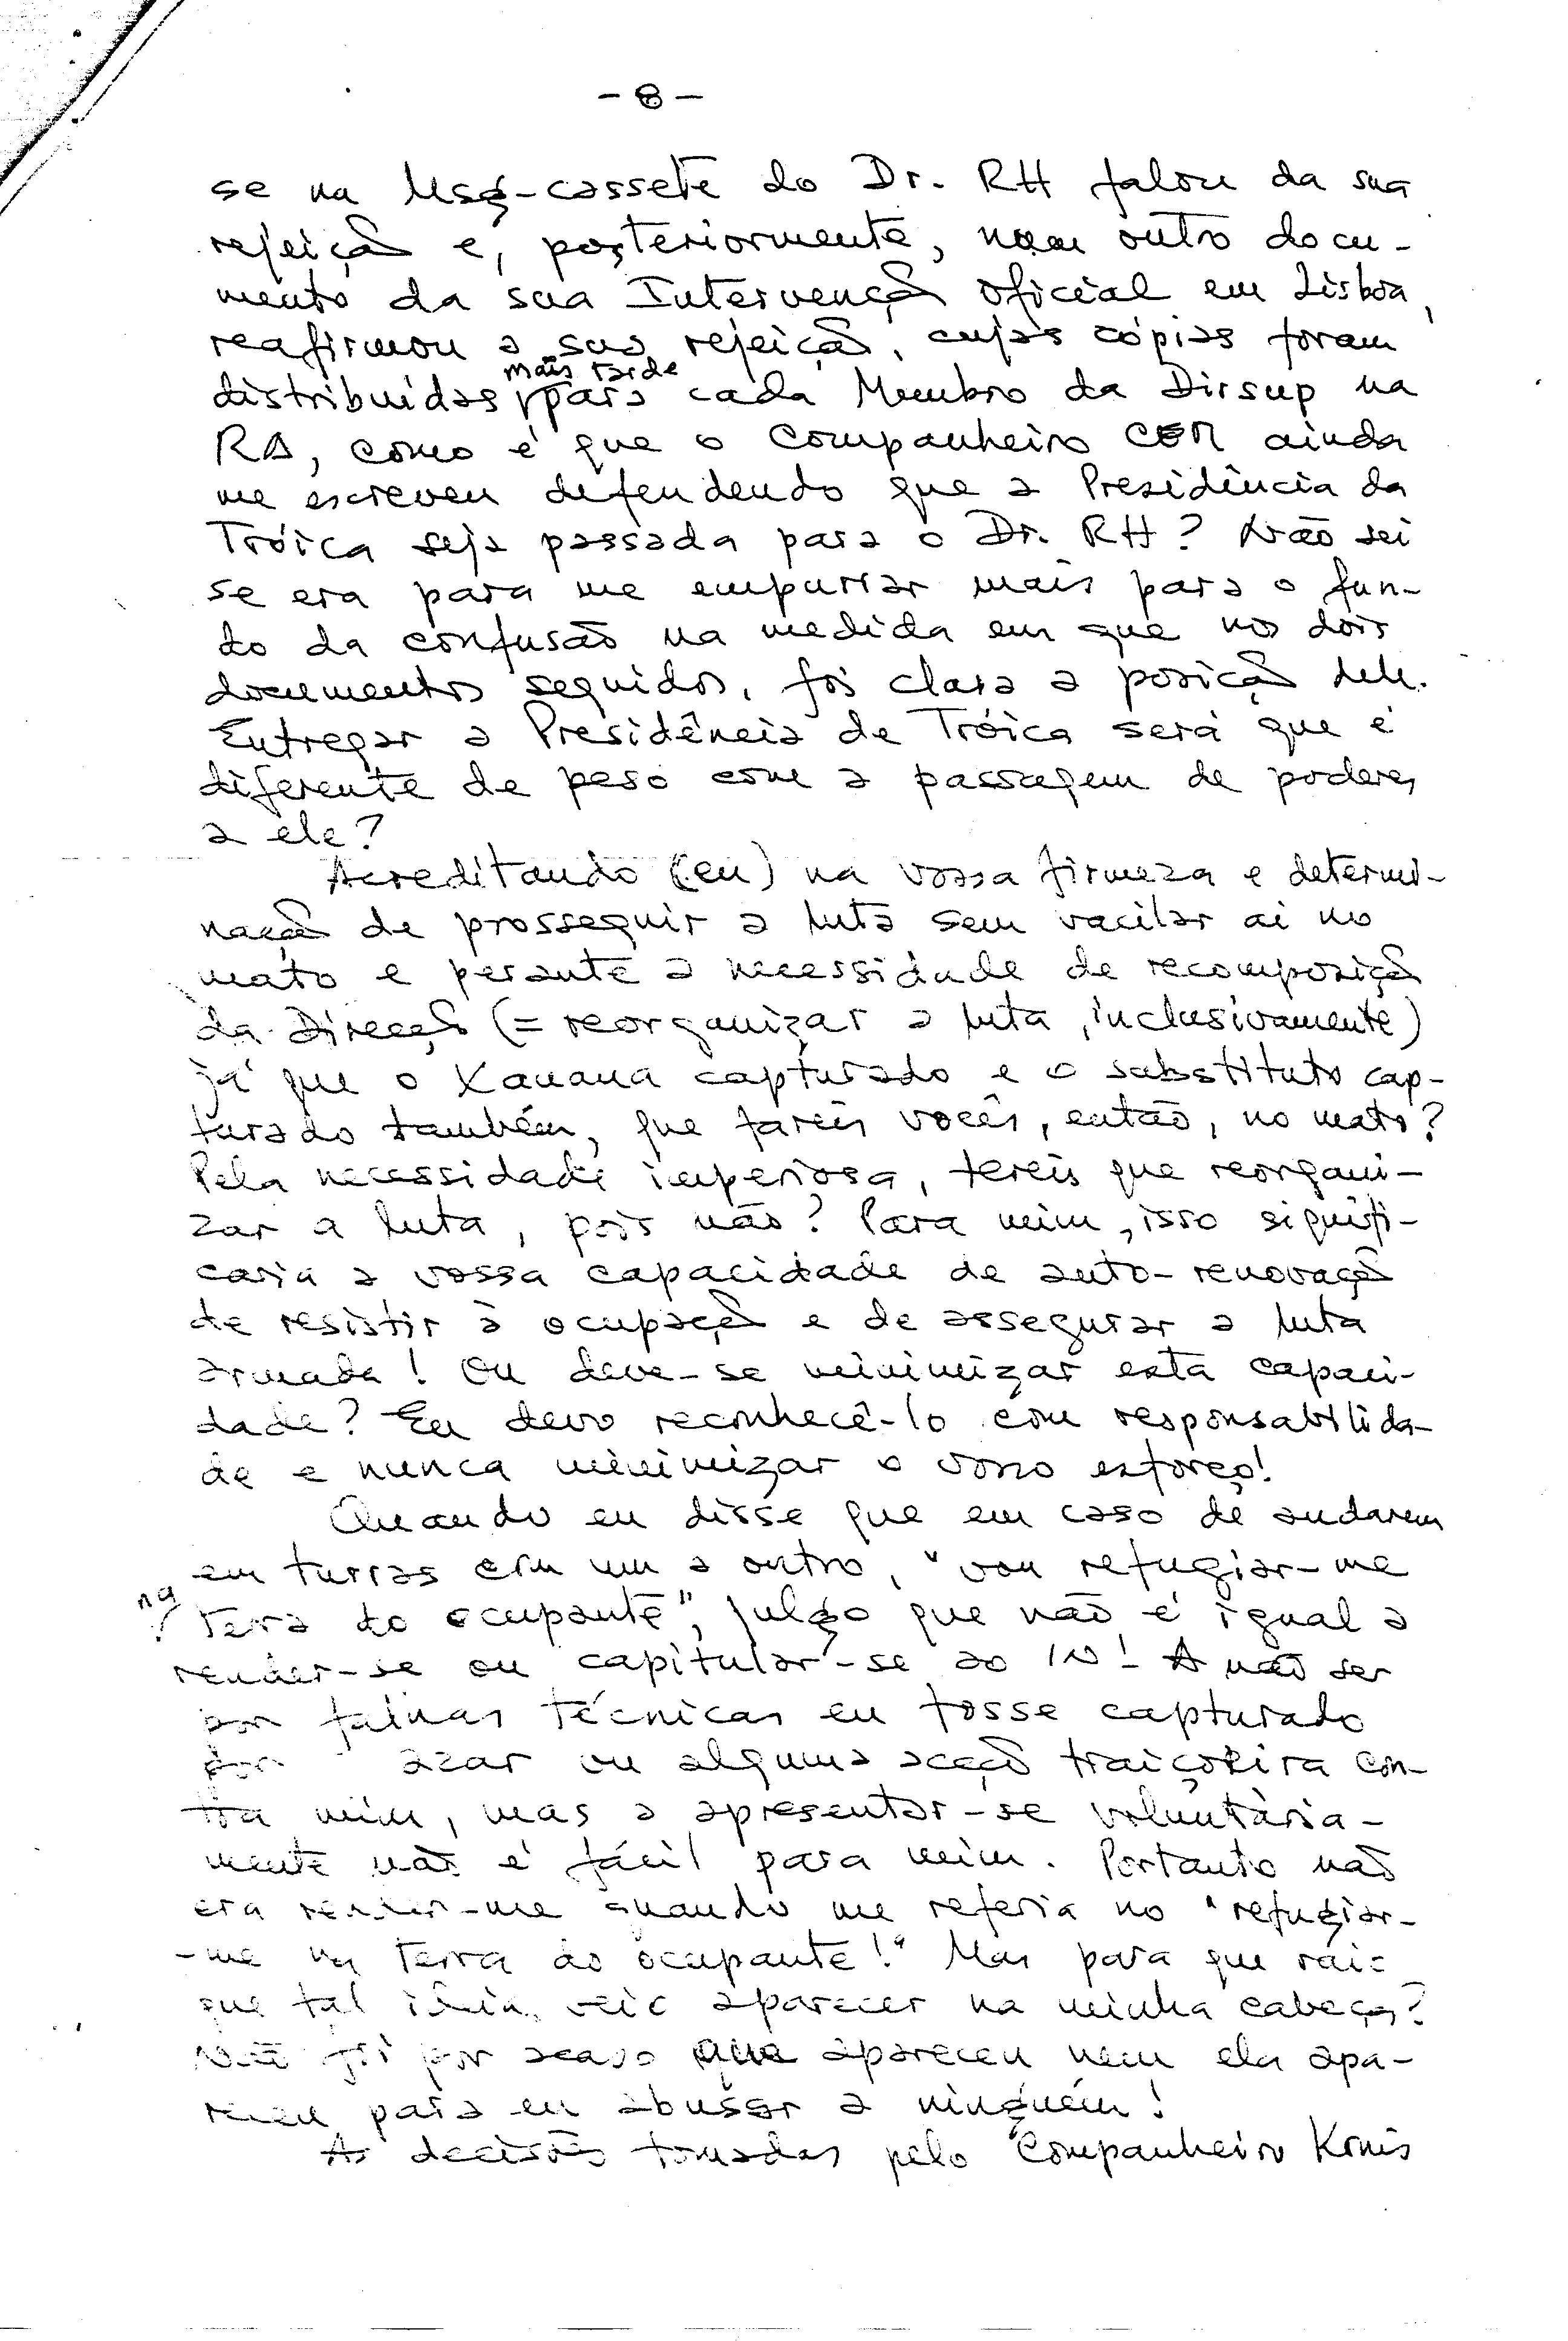 - 8 -
se na Msg-cassete do Dr. RH falou da sua
rejeição e, posteriormente, num outro docu-
mento da sua Intervenção Oficial em Lisboa,
reafirmou a sua rejeição, cujas cópias foram
mais tarde
distribuídas para cada Membro da Dirsup na
RA, como é que o Companheiro CEM ainda
me escreveu defendendo que a Presidência da
Tróica seja passada para o Dr. RH? Não sei
se era para me empurrar mais para o fun-
do da confusão na medida em que nos dois
documentos seguidos, foi clara a posição dele.
Entregar a Presidência de Tróica será que é
diferente de peso com a passagem de poderes
a ele?
Acreditando (eu) na vossa firmeza e determi-
nação de prosseguir a luta sem vacilar aí no
mato e perante a necessidade de recomposição
da Direcção (= reorganizar a luta, inclusivamente)
já que o Xanana capturado e o substituto cap-
turado também, que fareis vocês, então, no mato?
Pela necessidade imperiosa, tereis que reorgani-
zar a luta, pois não? Para mim, isso signifi-
caria a vossa capacidade de auto-renovação
de resistir à ocupação e de assegurar a luta
armada! Ou deve-se minimizar esta capaci-
dade? Eu devo reconhecê-lo com responsabilida-
de e nunca minimizar o vosso esforço!
Quando eu disse que em caso de andarem
em turras com um a outro, "vou refugiar-me
na
terra do ocupante", julgo que não é igual a
render-se ou capitular-se ao IN! A não ser
por falhas técnicas eu fosse capturado
por azar ou alguma acção traiçoeira con-
tra mim, mas a apresentar-se voluntària-
mente não é fácil para mim. Portanto não
era render-me quando me referia no "refugiar-
-me na terra do ocupante!" Mas para que raio
que tal ideia veio aparecer na minha cabeça?
Não foi por acaso que apareceu nem ela apa-
receu para eu abusar a ninguém!
As decisões tomadas pelo Companheiro Konis